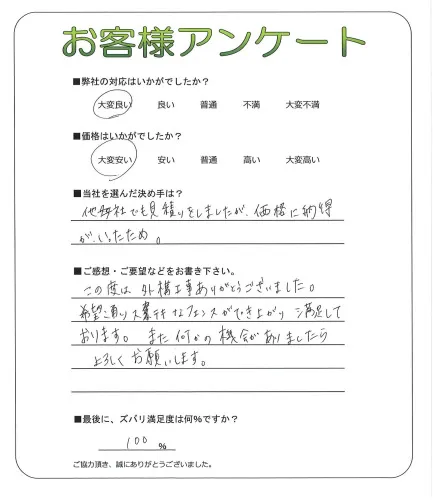 お客様アンケート
■弊社の対応はいかがでしたか？
大変良い 良い 普通 不満 大変不満
■価格はいかがでしたか？
大変安い 安い 普通 高い 大変高い
■当社を選んだ決め手は？
他数社でも見積りをしましたが、価格に納得
が、いったため。
■ご感想・ご要望などをお書き下さい。
この度は 外構工事ありがとうございました。
希望通り、素敵なフェンスができ上がり 満足して
おります。 また何かの機会がありましたら
よろしくお願いします。
■最後に、ズバリ満足度は何％ですか？
100 %
ご協力頂き、誠にありがとうございました。